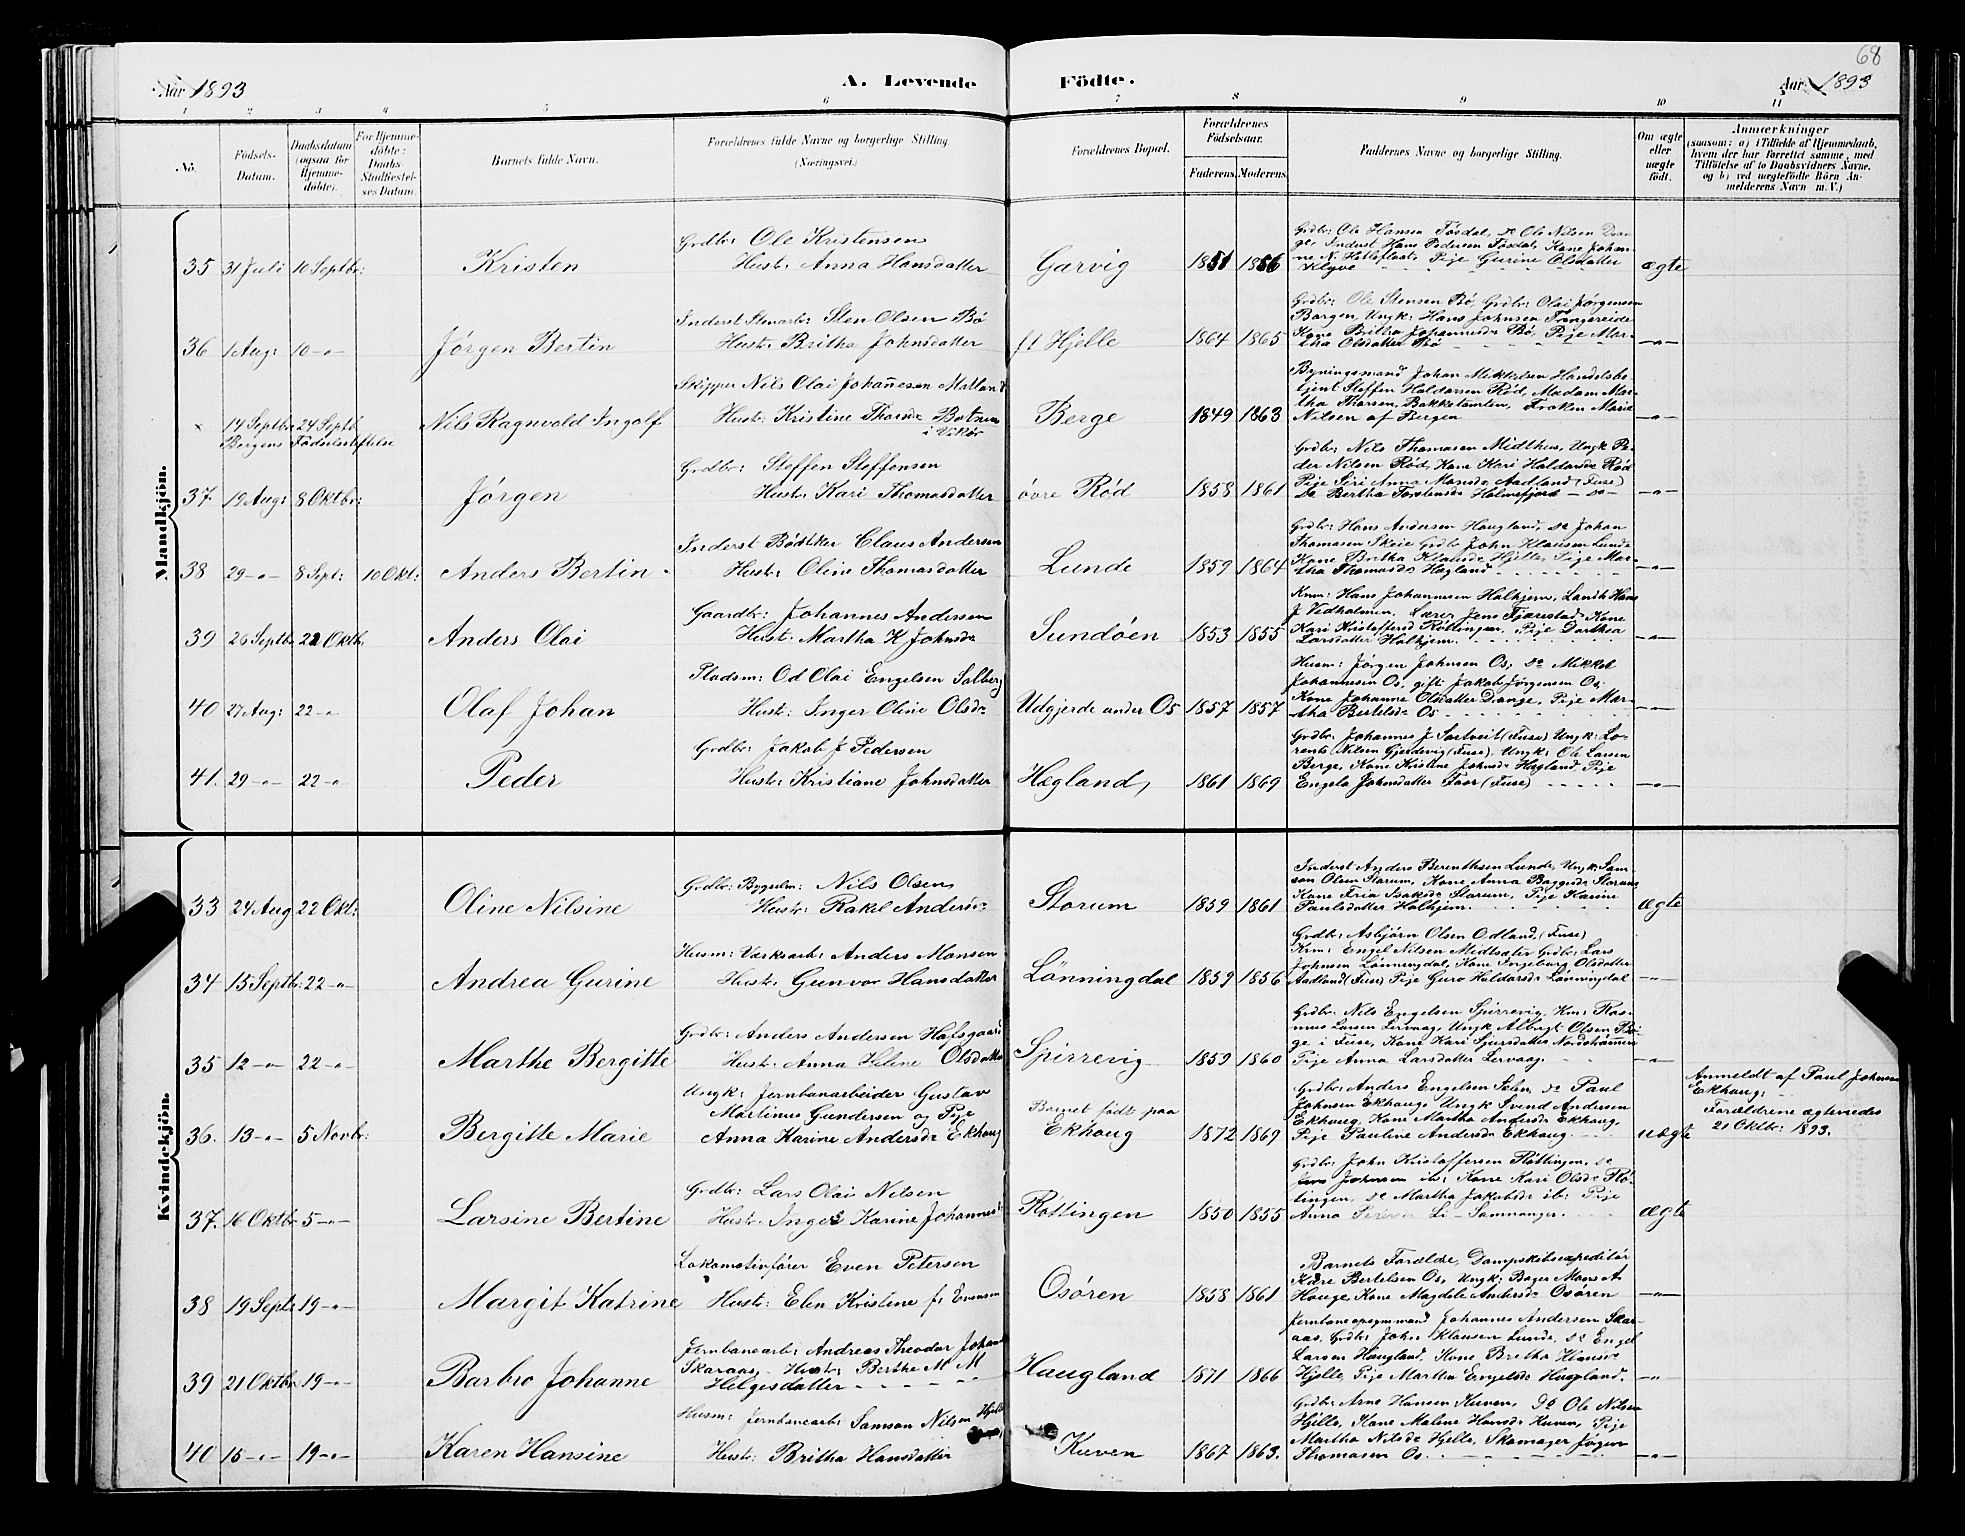 68
Aar 1893
A. Levende
Födte.
Aar 1893
1 2 3 4 5 6 7 8 9 10 11
No.
Födsels-
Datum.
Daabsdatum
(ogsaa for
Hjemme-
döbte).
For Hjemme-
döbte:
Daabs-
Stadfæstel-
ses Datum.
Barnets fulde Navn.
Forældrenes fulde Navne og borgerlige Stilling
(Næringsvei.)
Forældrenes Bopæl.
Forældrenes
Födselsaar.
Faderens. Moderens.
Faddernes Navne og borgerlige Stilling.
Om ægte
eller
uægte
födt.
Anmærkninger
(saasom: a) i Tilfælde af Hjemmedaab,
hvem der har forrettet samme, med
Tilföielse af to Daabsvidners Navne,
og b) ved uægtefödte Börn An-
melderens Navn m. V.)
Mandkjön.
35 31 Juli 10 Septbr: Kristen
Grdbr: Ole Kristensen
Hust: Anna Hansdatter
Garvig 1851 1856
Grdbr: Ole Hansen Tøsdal, do Ole Nilsen Dran-
ge, Inderst Hans Pedersen Tøsdal, Kone Johan-
ne N. Hatleflaat, Pije Gurine Olsdatter
Klyve
ægte
36 1 Aug: 10 -"- Jørgen Bertin
Inderst Stenarb: Sten Olsen Bö
Hust: Britha Johnsdatter
Hjelle 1864 1865
Grdbr: Ole Stensen Bö, Grdbr: Olai Jørgensen
Borgen, Ungk: Hans Johnsen Tøngereide
Kone Britha Johannesdr Bö, Pije Mar-
tha Olsdatter Bö
-"-
x 14 Septbr 24 Septb Nils Ragnvald Ingolf
Bergens Fødselsstiftelse
Skipper Nils Olai Johannesen Matland
Hust: Kristine Thomsdr Botnen
i Vikör
Berge 1849 1863
Bygningsmand Johan Mikkelsen Handelsbe-
tjent Steffen Haldorsen Röd, Madam Mar-
tha Thorsen, Bakketomten, Frøken Marie
Nilsen af Bergen
-"-
37 19 Aug: 8 Oktbr: Jørgen
Grdbr: Steffen Steffensen
Hust: Kari Thomasdatter
övre Röd 1858 1861
Grdbr: Nils Thomasen Midthus, Ungk Pe-
der Nilsen Röd, Kone Kari Haldorsdr Röd
Pije Siri Anna Monsdr Aadland (Fuse)
Do Bertha Torstensdr Holmefjord - do -
-"-
38 29 -"- 8 Sept: 10 Okt: Anders Bertin
Inderst Bödtker Claus Andersen
Hust: Oline Thomasdatter
Lunde 1859 1864
Grdbr: Hans Andersen Haugland, do Johan
Thomasen Skeie Grdbr John Klausen Lunde
Kone Britha Klausdr Hjelle, Pije Mar-
tha Thomasdr Hægland
-"-
39 26 Septbr 22 Oktbr Anders Olai
Gaardbr: Johannes Andersen
Hust: Martha K Johnsdr
Sundöen 1853 1855
Knm: Hans Johannesen Halhjem, Landh Hans
J Vedholmen, Lærer Jens Tjærstad, Kone
Kari Kristoffersd Röttingen, Pije Dorthea
Larsdatter Halhjem
-"-
40 27 Aug: 22 -"- Olaf Johan
Pladsm: Od Olai Engelsen Solberg
Hust: Inger Oline Olsdr
Udgjerde under Os 1857 1857
Husm: Jørgen Johnsen Os, do Mikkel
Johannesen Os, gift Jakob Jørgensen Os,
Kone Johanne Olsdatter Drange, Pije Mar-
tha Bertelsdr Os
-"-
41. 29 -"- 22 -"- Peder
Grdbr: Jakob J Pedersen
Hust: Kristiane Johnsdatter
Hægland, 1861 1869
Grdbr: Johannes J Sortveit (Fuse) Ungk: Lo-
rents Nilsen Gjerdevig (Fuse), Ungk: Ole Larsen
Berge, Kone Kristine Johnsdr Hægland Pije
Engela Johnsdatter (Fuse)
-"-
Kvindekjön.
33 24 Aug 22 Okt: Oline Nilsine
Grdbr: Bygselm: Nils Olsen
Hust: Rakel Andersdr
Storum 1859 1861
Inderst Anders Berenthsen Lunde, Ungk: Sam-
son Olsen Storum, Kone Anna Baggesdr Storum
Kone Fria Isaksdr Storum, Pije Karine
Paulsdatter Halhjem
ægte
34 15 Septbr: 22 -"- Andrea Gurine
Husm: Værksarb: Anders Monsen
Hust: Gunvor Hansdatter
Lönningdal 1859 1856
Grdbr: Asbjörn Olsen Odland, (Fuse)
Knm: Engel Nilsen Midtsæter Grdbr: Lars
Johnsen Lönningdal, Kone Ingeborg Olsdatter
Aadland (Fuse) Pije Guro Haldorsdr Lønningdal
-"-
35 12 -"- 22 -"- Marthe Bergitte
Grdbr: Anders Andersen Hafsgaard
Hust: Anna Helene Olsdatter
Spirrevig 1859 1860
Grdbr: Nils Engelsen Spirrevig, Knm: Ras-
mus Larsen Lervaag, Ungk Albregt Olsen Bø-
ge i Fuse, Kone Kari Sjursdatter Nordströnnen
Pije Anna Larsdatter Lervaag.
-"-
36. 13 -"- 5 Novbr: Bergitte Marie
Ungk: Jernbanearbeider Gustav
Martinus Gundersen og Pije
Anna Karine Andersdr Ekhaug
Barnet født paa
Ekhaug 1872 1869
Grdbr: Anders Engelsen Selen, do Paul
Johnsen Ekhaug, Ungk Svend Andersen
Ekhaug, Kone Martha Andersdr Ekhaug,
Pije Pauline Andersdr Ekhaug
uægte
Anmeldt af Paul Johnsen
Ekhaug;
Forældrene ægteviedes
21 Oktbr: 1893.
37. 16 Oktbr 5 -"- Larsine Bertine
Grdbr: Lars Olai Nilsen
Hust: Inger Karine Johannesd
Röttingen 1850 1855
Grdbr: John Kristoffersen Röttingen, do
Jens Johnsen ib: Kone Kari Olsdr Röt-
tingen, do Martha Jakobsdr ib: Pije
Anna Li - Samnanger.
ægte
38 19 Sept: 19 -"- Margit Katrine
Lokomotivfører Even Petersen
Hust: Elen Kristine f: Evensen
Osören 1858 1861
Barnets Forældre, Dampskibsexpeditör
Kaare Bertelsen Os, Ungk: Bager Mons A
Hauge, Kone Magdele Andersdr Osören
-"-
39 21 Oktbr 19 -"- Barbro Johanne
Jernbanearb: Andreas Theodor Johans
Skaraas Hust: Birthe M M
Helgesdatter
Haugland 1871 1866
Jernbaneopsynmand Johannes Andersen Skar-
aas, Grdbr: John Klausen Lunde, do Engel
Larsen Haugland, Kone Britha Klausdr
Hjelle, Pije Martha Engelsdr Haugland.
-"-
40 15 -"- 19 -"- Karen Hansine
Husm: Jernbanearb: Samson Nilsen Hjelle
Hust: Britha Hansdatter
Kuven 1867 1863.
Grdbr: Arne Hansen Kuven, do Ole Nilsen
Hjelle, Kone Malene Hansdr Kuven, Pije
Martha Nilsdr Hjelle, Skomager Jørgen
Thomasen Os.
-"-